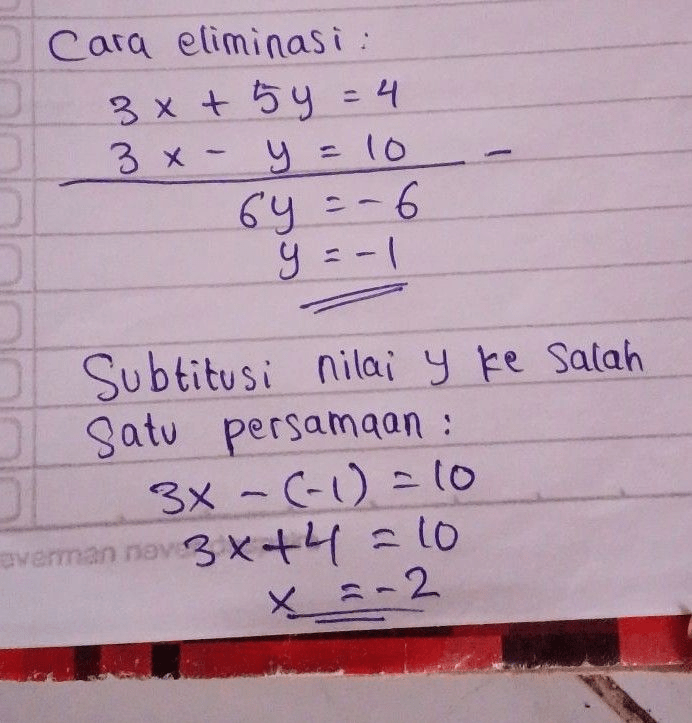 Cara eliminasi :
3x + 5y = 4
3x - y = 10 -
6y = -6
y = -1
Subtitusi nilai y ke salah
Satu persamaan :
3x - (-1) = 10
3x + 4 = 10
x = -2